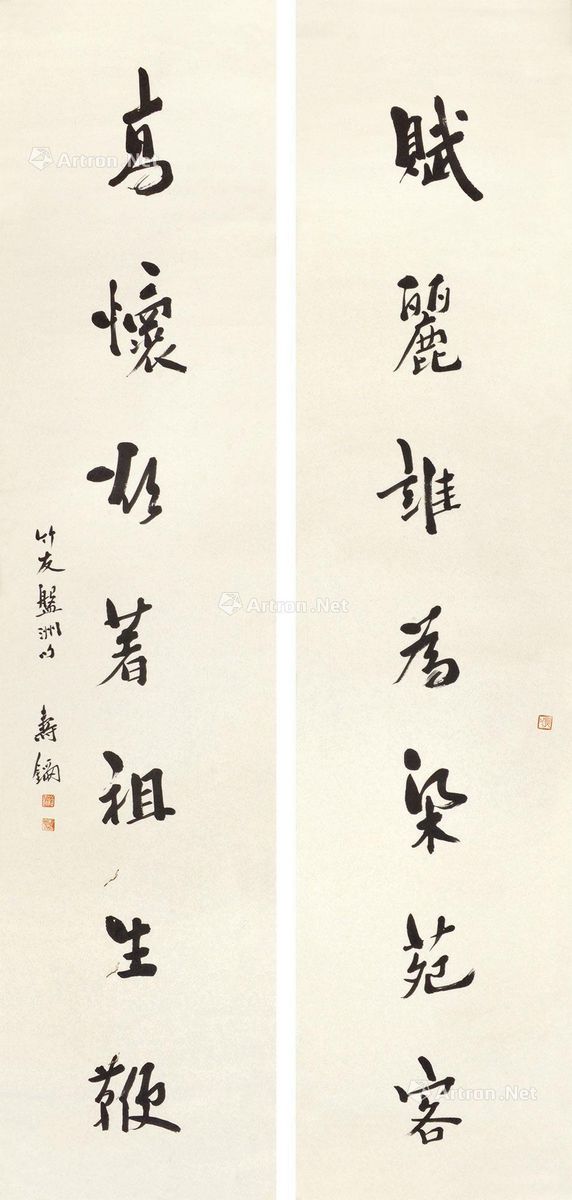 賦麗誰為梁苑客
高懷欲著祖生鞭
竹友盤洲句 壽鏞
Artron.Net
Artron.Net
Artron.Net